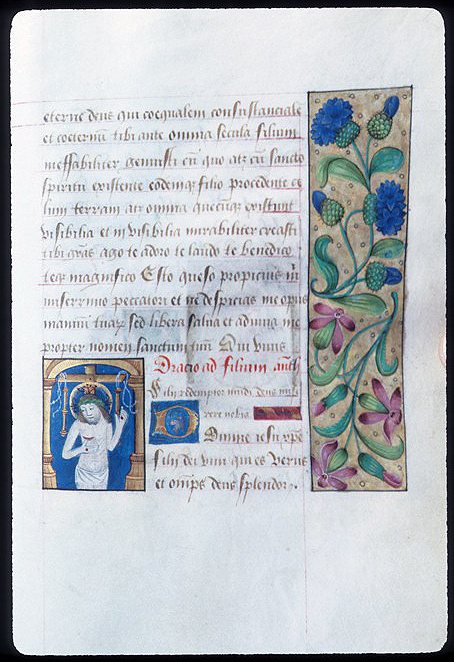 eterne deus qui coequalem consubstanciale
et coeternū tibi ante omnia secula filium
ineffabiliter genuisti cū quo atqz cū sancto
spiritu existente eodemqz filio procedente ce
lum terram atqz omnia quecūqz existunt
visibilia et in visibilia mirabiliter creasti
tibi grās ago te adoro te laudo te benedico
teqz magnifico Esto queso propicius m̄
miserrimo peccatori et ne despicias me opus
manuū tuarū sed libera salua et adiuua me
propter nomen sanctum tuū Qui viuis
Oracio ad filium anth
Fili redemptor mūdi deus mise
rere nobis
Domine iesu xp̄e
fili dei viui qui es verus
et om̄ps deus splendor